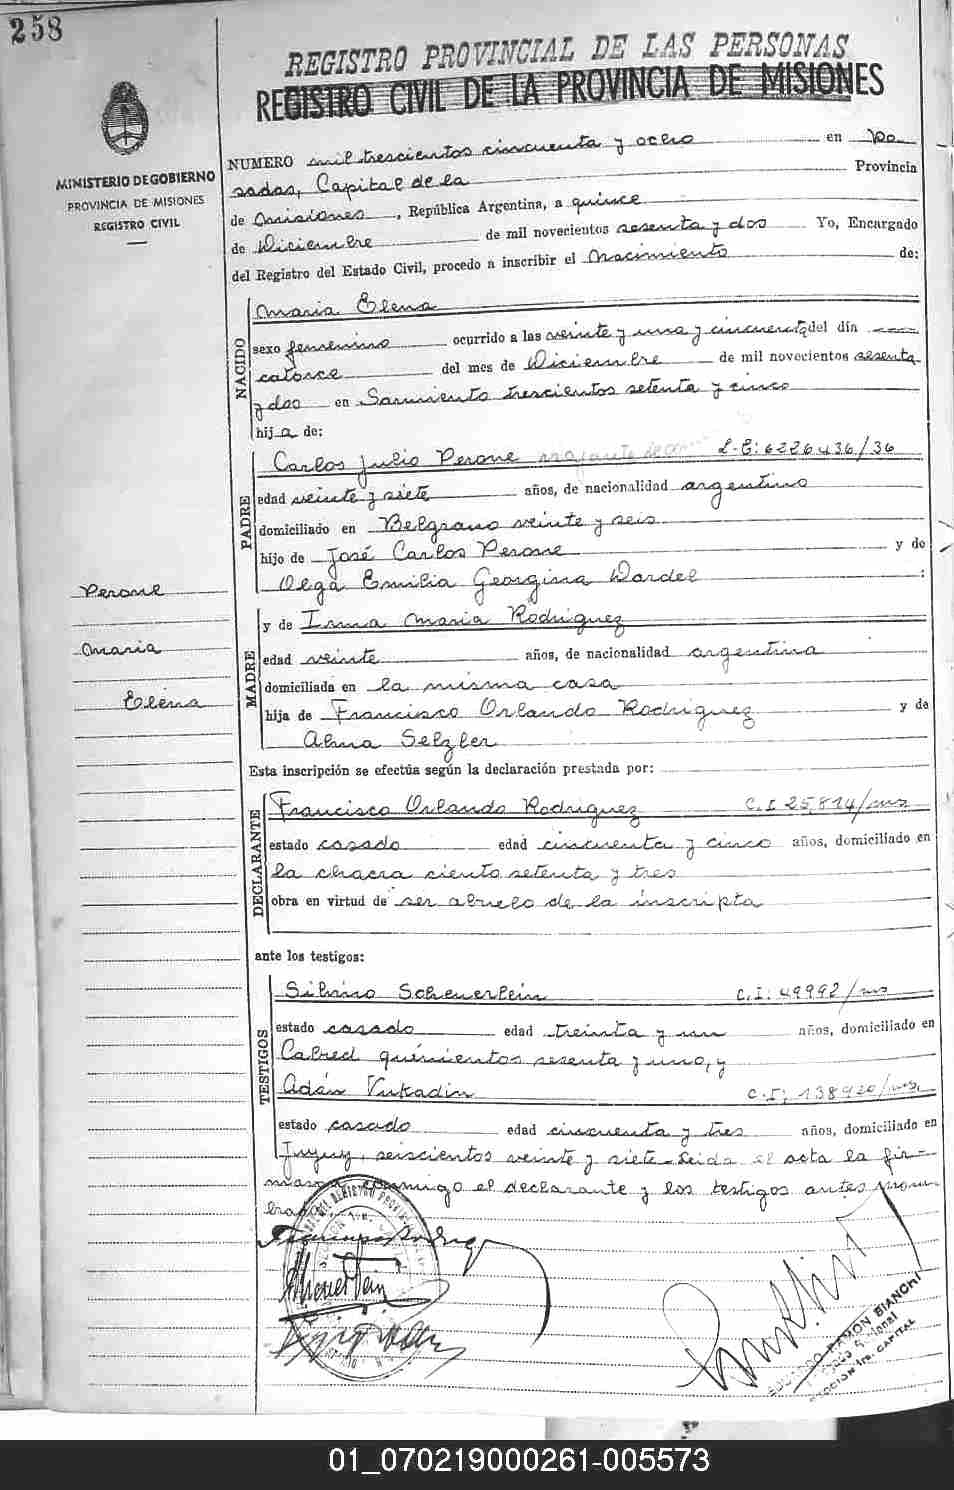 258
REGISTRO PROVINCIAL DE LAS PERSONAS
REGISTRO CIVIL DE LA PROVINCIA DE MISIONES
MINISTERIO DE GOBIERNO
PROVINCIA DE MISIONES
REGISTRO CIVIL
NUMERO mil trescientos cincuenta y ocho en Po
sadas, Capital de la Provincia
de Misiones, República Argentina, a quince
de Diciembre de mil novecientos sesenta y dos Yo, Encargado
del Registro del Estado Civil, procedo a inscribir el Nacimiento de:
NACIDO
Maria Elena
sexo femenino ocurrido a las veinte y una y cincuenta del día
catorce del mes de Diciembre de mil novecientos sesenta
y dos en Sarmiento trescientos setenta y cinco
hija de:
PADRE
Carlos Julio Perone L-E: 6226436/36
edad veinte y siete años, de nacionalidad argentino
domiciliado en Belgrano veinte y seis
hijo de José Carlos Perone y de
Olga Emilia Georgina Dardel :
Perone
Maria
Elena
MADRE
y de Irma Maria Rodriguez
edad veinte años, de nacionalidad argentina
domiciliada en la misma casa
hija de Francisco Orlando Rodriguez y de
Alma Selzler
Esta inscripción se efectúa según la declaración prestada por:
DECLARANTE
Francisco Orlando Rodriguez C.I 25,814/mns
estado casado edad cincuenta y cinco años, domiciliado en
la chacra ciento setenta y tres
obra en virtud de ser abuelo de la inscripta
ante los testigos:
TESTIGOS
Silvino Scheuerlein C.I: 49992/mns
estado casado edad treinta y un años, domiciliado en
Cabred quinientos sesenta y uno, y
Adán Vukadin C.I; 138920/mns.
estado casado edad cincuenta y tres años, domiciliado en
Jujuy, seiscientos veinte y siete - Leida el acta la fir-
maron conmigo el declarante y los testigos antes nom-
brados
RAMON BIANCHI
CAPITAL
01_070219000261-005573